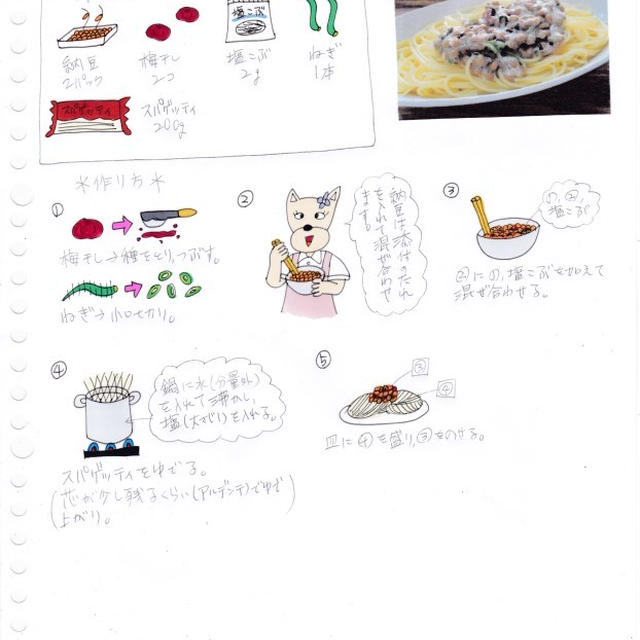 納豆
2パック
梅干し
2コ
塩こぶ
塩こぶ
2g
ねぎ
1本
スパゲッティ
スパゲッティ
200g
*作り方*
①
梅干し→種をとり、つぶす。
ねぎ→小口切り。
②
納豆は添付のたれ
を入れて混ぜ合わせ
ます。
③
①,②,
塩こぶ
②に①,塩こぶを加えて
混ぜ合わせる。
④
鍋に水(分量外)
を入れて沸かし,
塩(大さじ1)を入れる。
スパゲッティをゆでる。
(芯が少し残るくらい(アルデンテ)でゆで
上がり。)
⑤
③
④
皿に④を盛り,③をのせる。